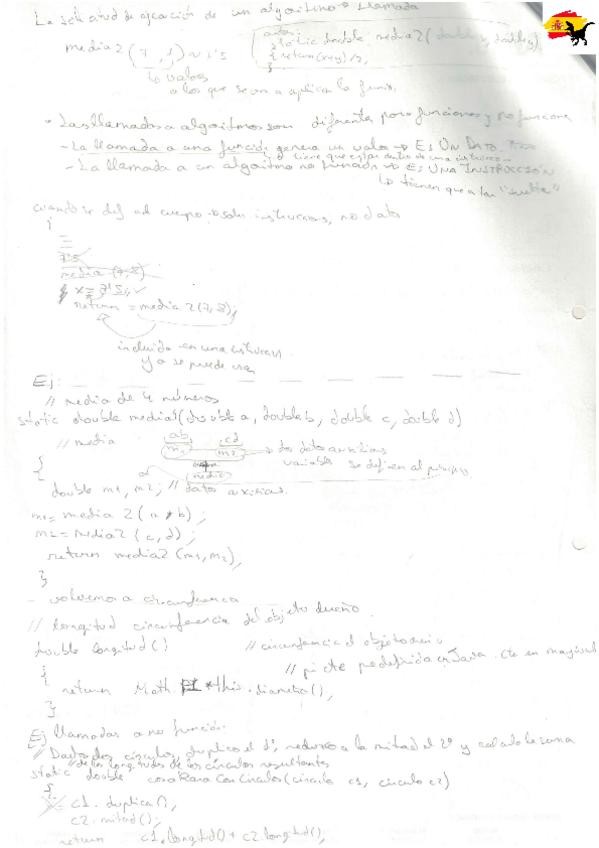 La solicitud de ejecución de un algoritmo → llamada
media 2 (7, 8) ~ 7'5
static double media2(double x, double y)
{ return (x+y)/2;
↳ valores
a los que se van a aplicar la func.
• Las llamadas a algoritmos son diferentes para funciones y no funciones
- La llamada a una función genera un valor → ES UN DATO.
tiene que estar dentro de una instrucc.
- La llamada a un algoritmo no función → ES UNA INSTRUCCIÓN
↳ tienen que ir "suelta"
cuando se def el cuerpo → solo instrucciones, no dato
{
7'5
media (7,8)
x = 7'5; ✓
return = media 2(7,8);
incluida en una instrucc.
ya se puede usar
Ej:
// media de 4 números
static double media4(double a, double b, double c, double d)
// media
ab cd
m1 m2 → dos datos auxiliares
variables se definen al principio
media
{
double m1, m2; // datos auxiliares
m1 = media 2 (a, b);
m2 = media2 (c, d);
return media2 (m1, m2);
}
- volvemos a circunferencia
// longitud circunferencia del objeto dueño.
double longitud() // circunferencia el objeto dueño
// pi cte predefinida en Java. Cte en mayúscul
{
return Math.PI * this.diametro();
}
Ej llamadas a no función.
// Dados dos círculos, duplico el 1º, reduzco a la mitad el 2º y calculo la suma
// de las longitudes de los círculos resultantes
static double cosaRaraConCirculos(circulo c1, circulo c2)
{
c1.duplica();
c2.mitad();
return c1.longitud() + c2.longitud();